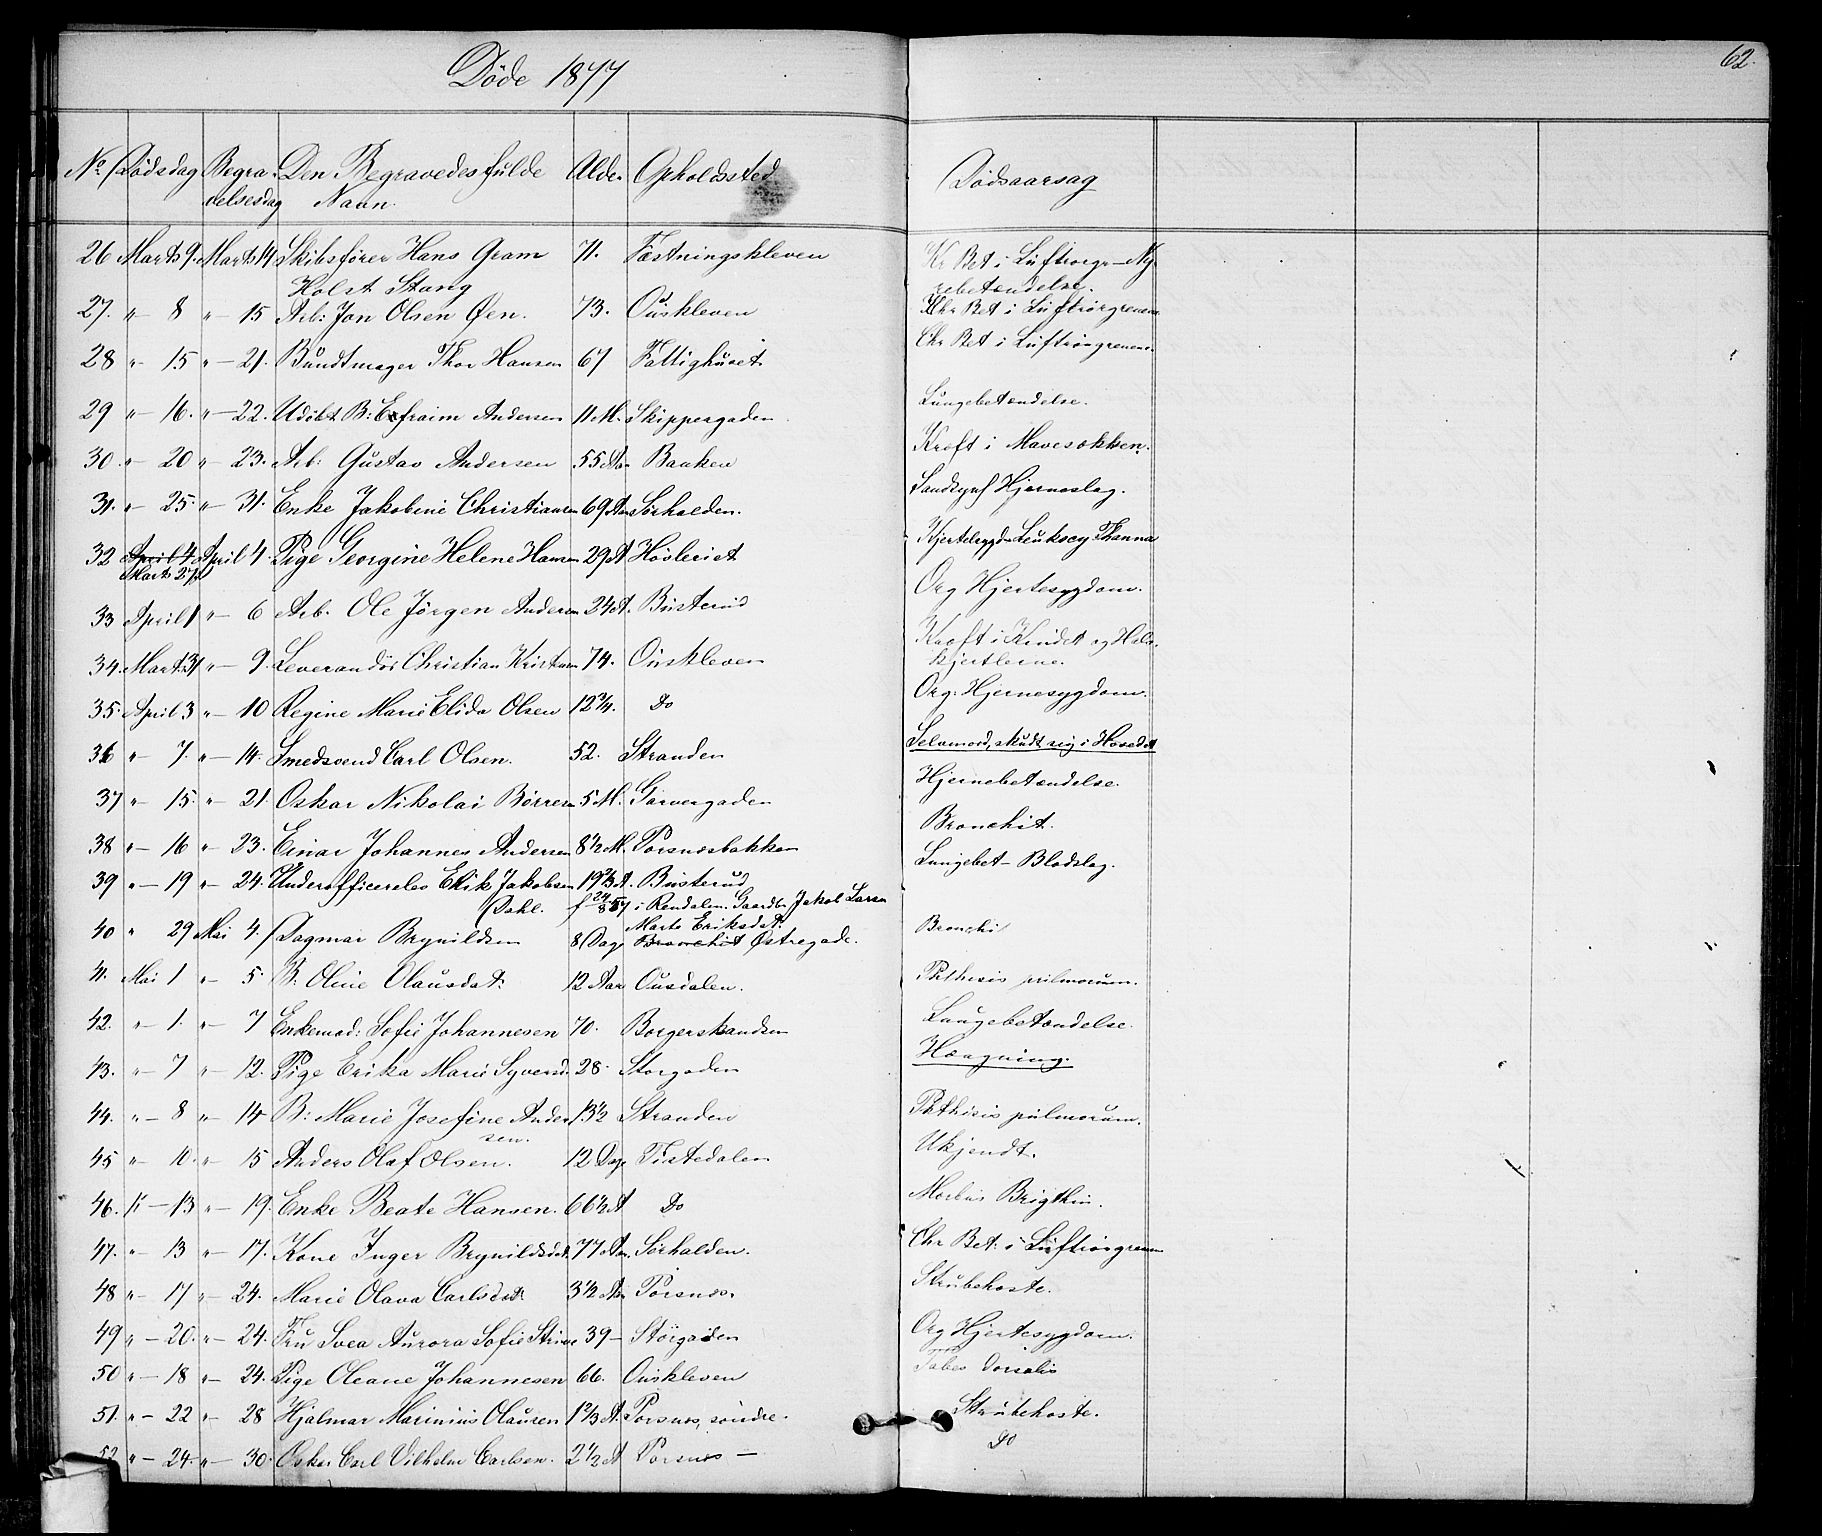 Døde 1877
62.
No Dødsdag Begravelsesdag Den Begravedes fulde Navn. Alder Opholdssted Dødsaarsag
26 Marts 9. Marts 14 Skibsfører Hans Gram Holst Stang 71. Fæstningskleven Kr Bet i Luftrørgr- Nyrebetændelse.
27. " 8 " 15 Arb: Jon Olsen Øen. 73. Ouskleven Chr Bet i Luftrørgrenene
28 " 15 " 21. Bundtmager Thor Hansen 67 Fattighuset Chr Bet i Luftrørgrenene.
29 " 16. " 22. Udøbt B: Efraim Andersen 11 M. Skippergaden Lungebetændelse.
30. " 20 " 23. Arb: Gustav Andersen 55 Aar Banken Kræft i Mavesækken.
31. " 25. " 31. Enke Jakobine Christiansen 69 Aar Sørhalden. Sandsynl Hjerneslag.
32 April 4. Marts 27 April 4. Pige Georgine Helene Hansen 29 A Høvleriet Kjertelsygd-
33 April 1 " 6 Arb. Ole Jørgen Andersen 24 A. Busterud Org Hjertesygdom.
34. Marts 31 " 9. Leverandør Christian Kristensen 74. Ouskleven Kræft i Kindet og Halskjertlerne.
35. April 3 " 10 Regine Marie Elida Olsen 12 3/4. Do Org: Hjernesygdom.
36 " 7. " 14. Smedsvend Carl Olsen. 52. Stranden Selvmord, skudt sig i Hovedet
37 " 15. " 21. Oskar Nikolai Børresen 5 M. Garvergaden Hjernebetændelse.
38 " 16 " 23. Einar Johannes Andersen 8 1/2 M. Porsnæsbakken Bronchit.
39 " 19 " 24. Underofficerelev Erik Jakobsen Dahl. 19 2/3 A. Busterud Lungebet- Blodslag.
f 24/8 57 i Rendalen. Gaardbr Jakob Larsen Marte Eriksdat:
40 " 29 Mai 4. Dagmar Brynildsen 8 Dage Bronchit Østregade. Bronchi
41. Mai 1 " 5. B: Oline Olausdat: 12 Aar Ousdalen. Phthisis pulmorum.
42. " 1. " 7 Enkemad: Sofie Johannesen 70. Borgerskandsen Lungebetændelse.
43. " 7 " 12. Pige Erika Marie Syversd. 28. Storgaden Hængning.
44. " 8 " 14 B: Marie Josefine Andersen. 13 1/2 Stranden Phthisis pulmorum.
45 " 10. " 15 Anders Olaf Olsen. 12 Dage Tistedalen Ukjendt.
46. " 13 " 19. Enke Beate Hansen. 66 1/2 A Do Morbus Brigthii.
47. " 13 " 17. Kone Inger Brynildsdat. 77 Aar Sørhalden. Chr Bet: i Luftrørgrenene
48 " 17 " 24. Marie Olava Carlsdat 3 1/2 Aar Porsnæs. Strubehoste.
49 " 20. " 24. Fru Svea Aurora Sofie 39 Storgaden Org Hjertesygdom.
50 " 18 " 24. Pige Oleane Johannesen 66. Ouskleven Tabes Dorsalis
51. " 22 " 28 Hjalmar Marinius Olausen 1 2/3 A. Porsnæs, søndre. Strubehoste.
52 " 24. " 30. Oskar Carl Vilhelm Carlsen. 2 1/2 A Porsnæs — Do